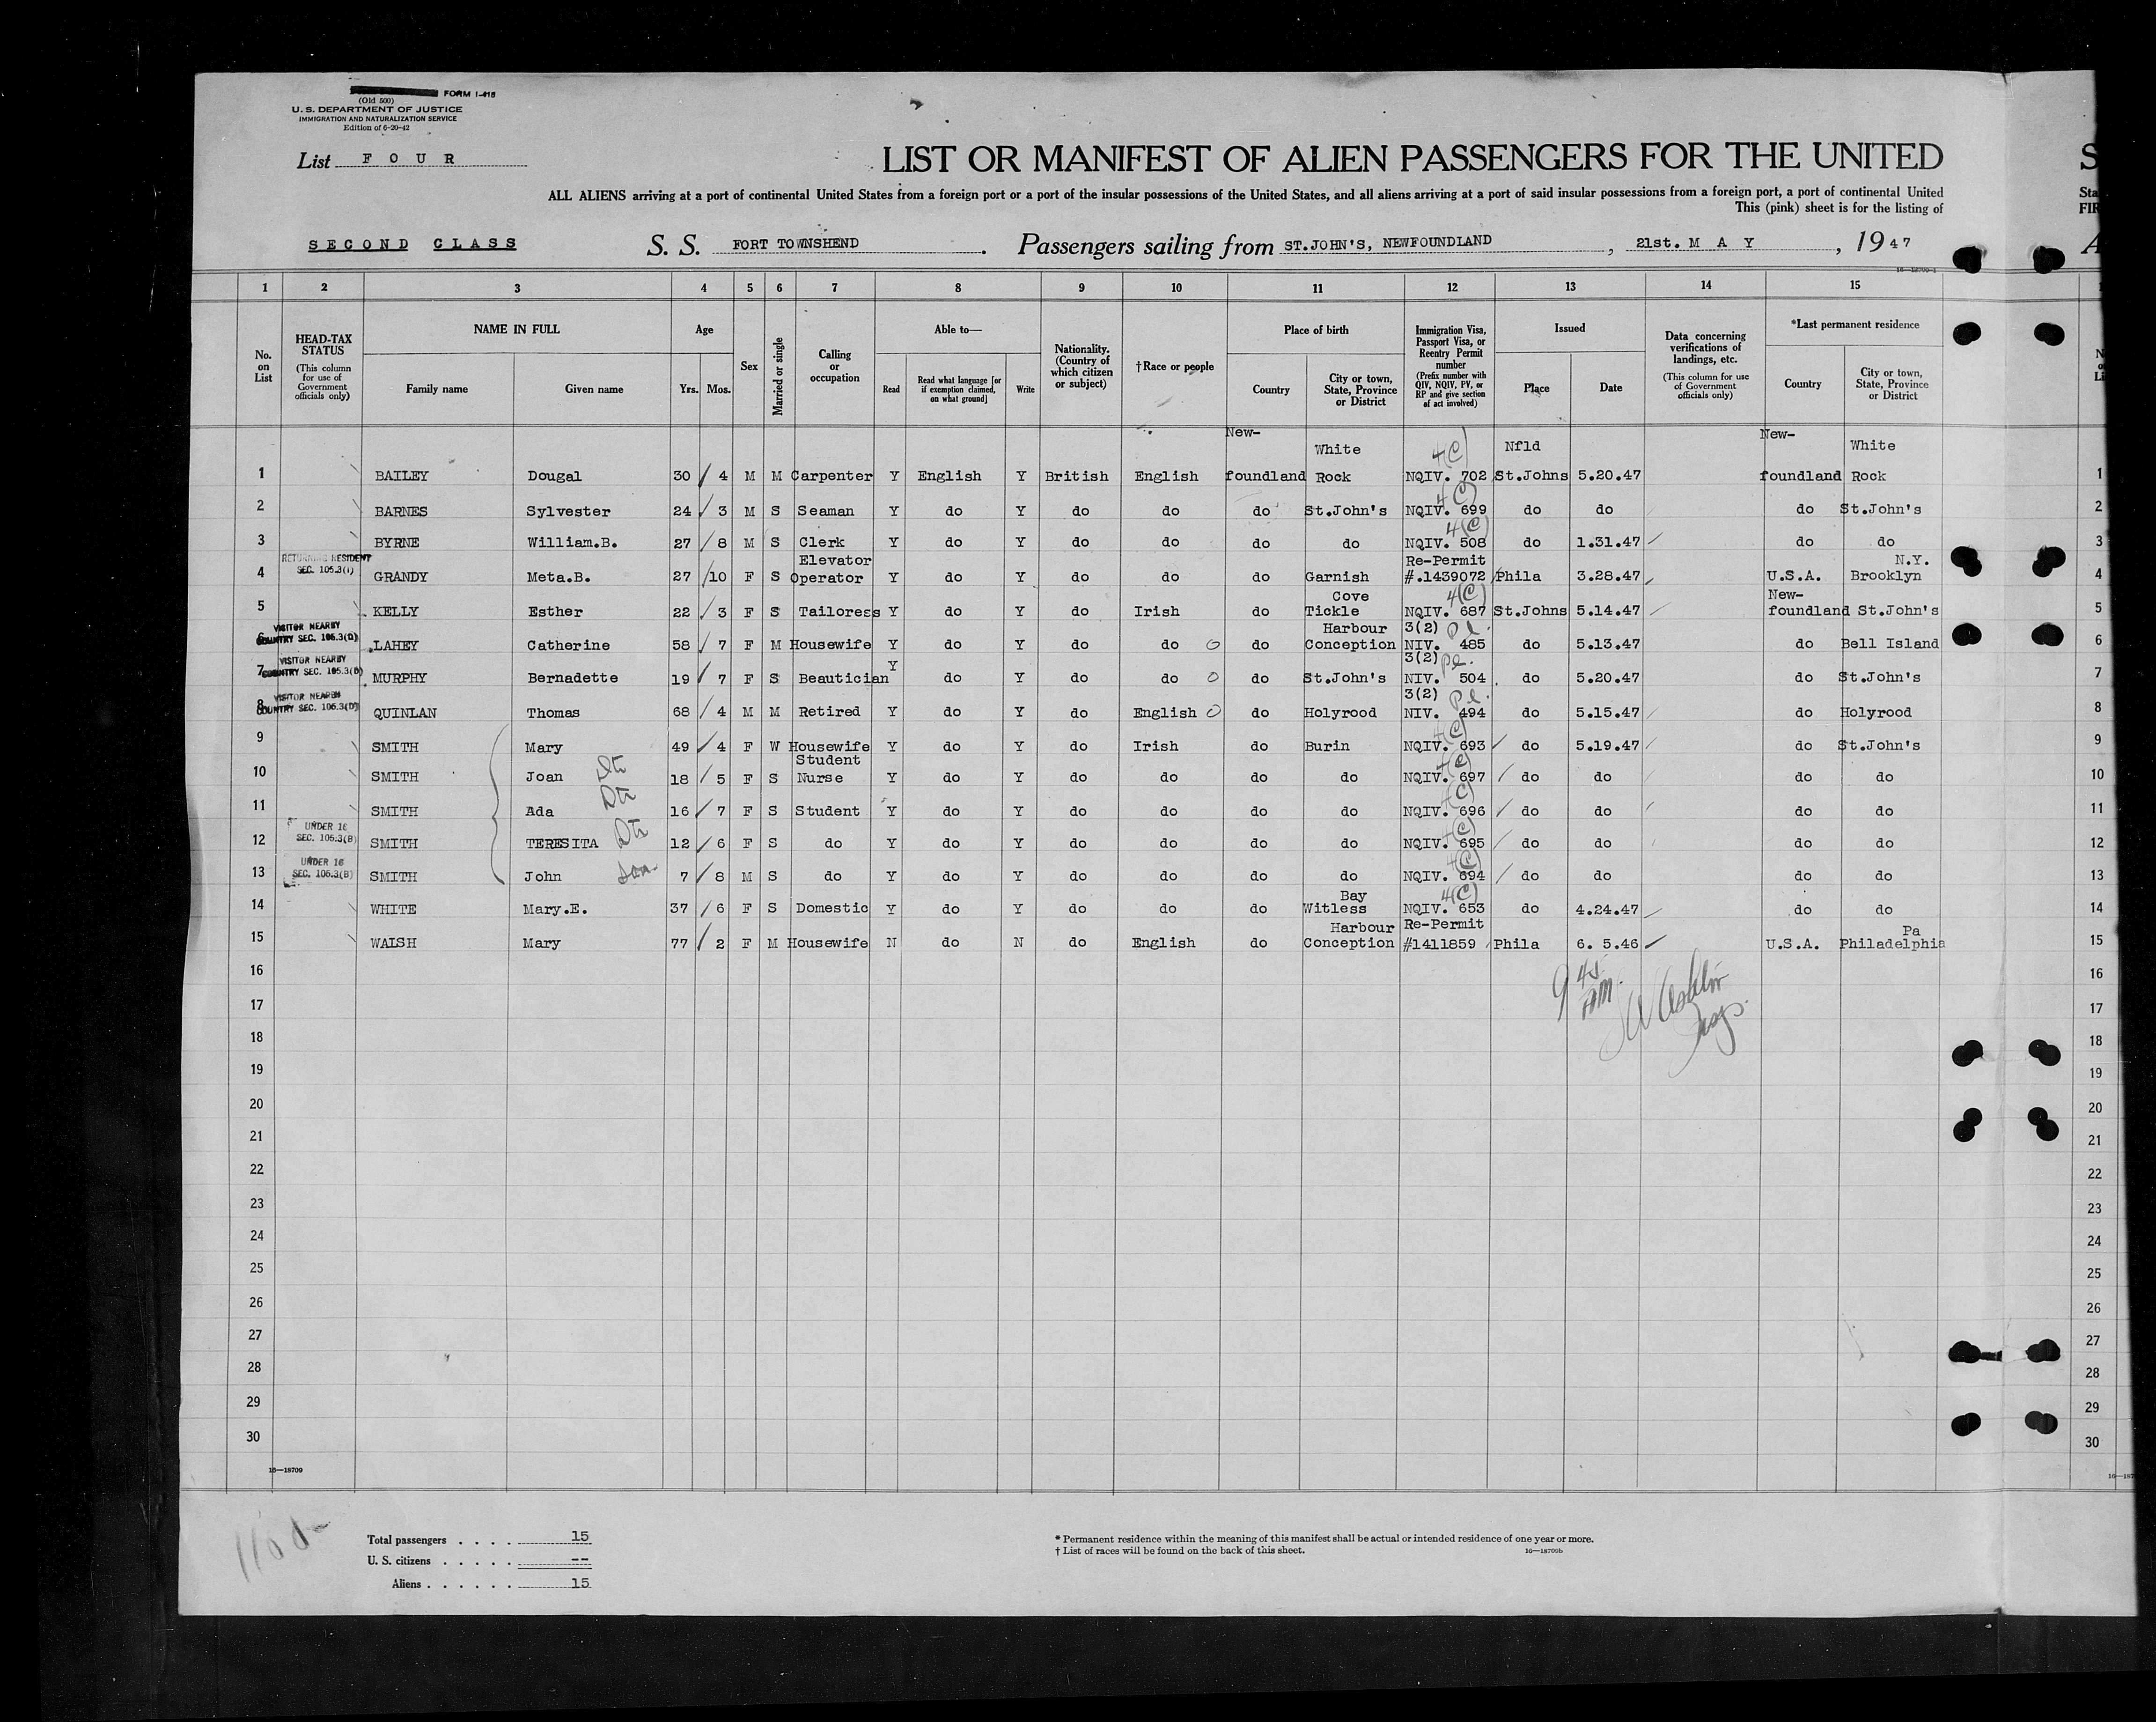 FORM I-415
(Old 500)
U. S. DEPARTMENT OF JUSTICE
IMMIGRATION AND NATURALIZATION SERVICE
Edition of 6-20-42
List F O U R
LIST OR MANIFEST OF ALIEN PASSENGERS FOR THE UNITED
S
ALL ALIENS arriving at a port of continental United States from a foreign port or a port of the insular possessions of the United States, and all aliens arriving at a port of said insular possessions from a foreign port, a port of continental United
Sta
This (pink) sheet is for the listing of
FIR
SECOND CLASS S. S. FORT TOWNSHEND . Passengers sailing from ST.JOHN'S, NEWFOUNDLAND , 21st. M A Y , 19 47
A
16—18700-1
1 2 3 4 5 6 7 8 9 10 11 12 13 14 15
No. on List
HEAD-TAX STATUS (This column for use of Government officials only)
NAME IN FULL
Family name Given name
Age
Yrs. Mos.
Sex
Married or single
Calling or occupation
Able to—
Read Read what language [or if exemption claimed, on what ground] Write
Nationality. (Country of which citizen or subject)
†Race or people
Place of birth
Country City or town, State, Province or District
Immigration Visa, Passport Visa, or Reentry Permit number (Prefix number with QIV, NQIV, PV, or RP and give section of act involved)
Issued
Place Date
Data concerning verifications of landings, etc. (This column for use of Government officials only)
*Last permanent residence
Country City or town, State, Province or District
New- White 4(C) Nfld New- White
1 BAILEY Dougal 30 4 M M Carpenter Y English Y British English foundland Rock NQIV. 702 St.Johns 5.20.47 foundland Rock 1
4(C)
2 BARNES Sylvester 24 3 M S Seaman Y do Y do do do St.John's NQIV. 699 do do do St.John's 2
4(C)
3 BYRNE William.B. 27 8 M S Clerk Y do Y do do do do NQIV. 508 do 1.31.47 do do 3
RETURNING RESIDENT SEC. 105.3(I) Elevator Re-Permit N.Y.
4 GRANDY Meta.B. 27 10 F S Operator Y do Y do do do Garnish #.1439072 Phila 3.28.47 U.S.A. Brooklyn 4
Cove 4(C) New-
5 KELLY Esther 22 3 F S Tailoress Y do Y do Irish do Tickle NQIV. 687 St.Johns 5.14.47 foundland St.John's 5
VISITOR NEARBY COUNTRY SEC. 105.3(D) Harbour 3(2) Pl.
6 LAHEY Catherine 58 7 F M Housewife Y do Y do do do Conception NIV. 485 do 5.13.47 do Bell Island 6
VISITOR NEARBY COUNTRY SEC. 105.3(D) Y 3(2) Pl.
7 MURPHY Bernadette 19 7 F S Beautician do Y do do do St.John's NIV. 504 do 5.20.47 do St.John's 7
VISITOR NEARBY COUNTRY SEC. 105.3(D) 3(2) Pl.
8 QUINLAN Thomas 68 4 M M Retired Y do Y do English do Holyrood NIV. 494 do 5.15.47 do Holyrood 8
4(C)
9 SMITH Mary 49 4 F W Housewife Y do Y do Irish do Burin NQIV. 693 do 5.19.47 do St.John's 9
Student 4(C)
10 SMITH Joan 18 5 F S Nurse Y do Y do do do do NQIV. 697 do do do do 10
4(C)
11 SMITH Ada 16 7 F S Student Y do Y do do do do NQIV. 696 do do do do 11
UNDER 16 SEC. 105.3(B) 4(C)
12 SMITH TERESITA 12 6 F S do Y do Y do do do do NQIV. 695 do do do do 12
UNDER 16 SEC. 105.3(B) 4(C)
13 SMITH John Son 7 8 M S do Y do Y do do do do NQIV. 694 do do do do 13
Bay 4(C)
14 WHITE Mary.E. 37 6 F S Domestic Y do Y do do do Witless NQIV. 653 do 4.24.47 do do 14
Harbour Re-Permit Pa
15 WALSH Mary 77 2 F M Housewife N do N do English do Conception #1411859 Phila 6. 5.46 U.S.A. Philadelphia 15
16 16
9 45 AM.
17 17
18 18
19 19
20 20
21 21
22 22
23 23
24 24
25 25
26 26
27 27
28 28
29 29
30 30
16—18709
16—187
Total passengers . . . . 15
U. S. citizens . . . . . --
Aliens . . . . . . 15
* Permanent residence within the meaning of this manifest shall be actual or intended residence of one year or more.
† List of races will be found on the back of this sheet. 16—18709b